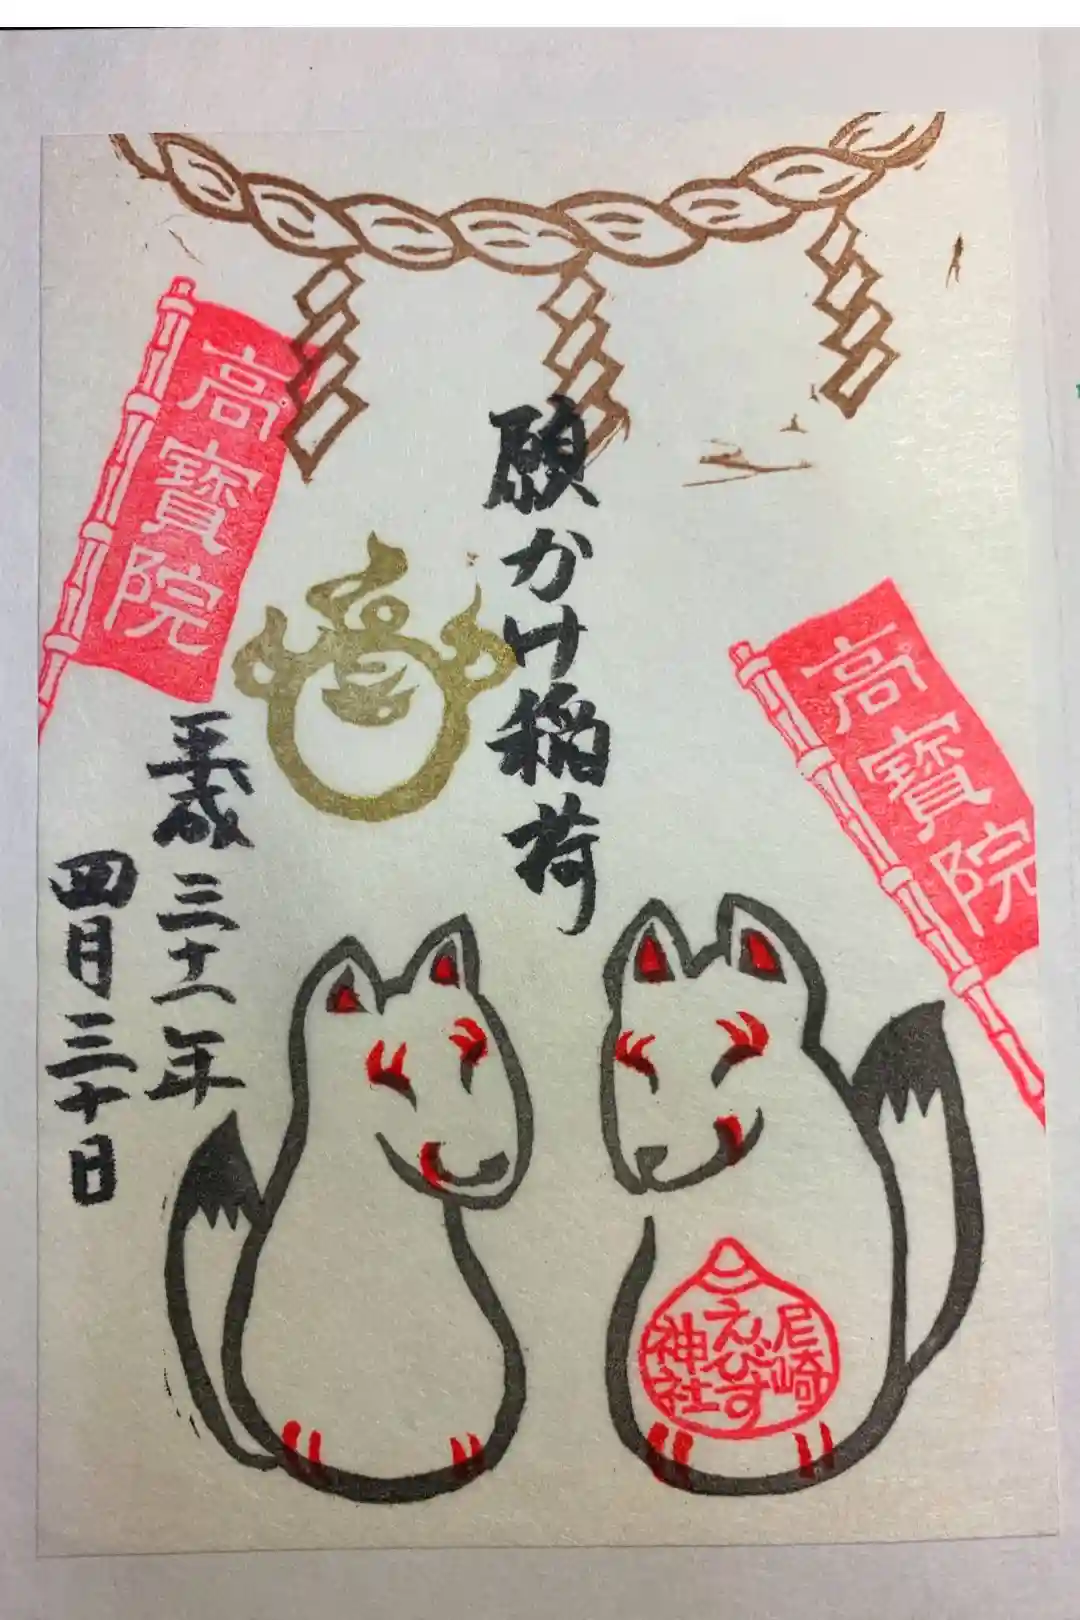 願かけ稲荷
平成三十一年
四月三十日
高寳院
高寳院
尼崎
えびす
神社